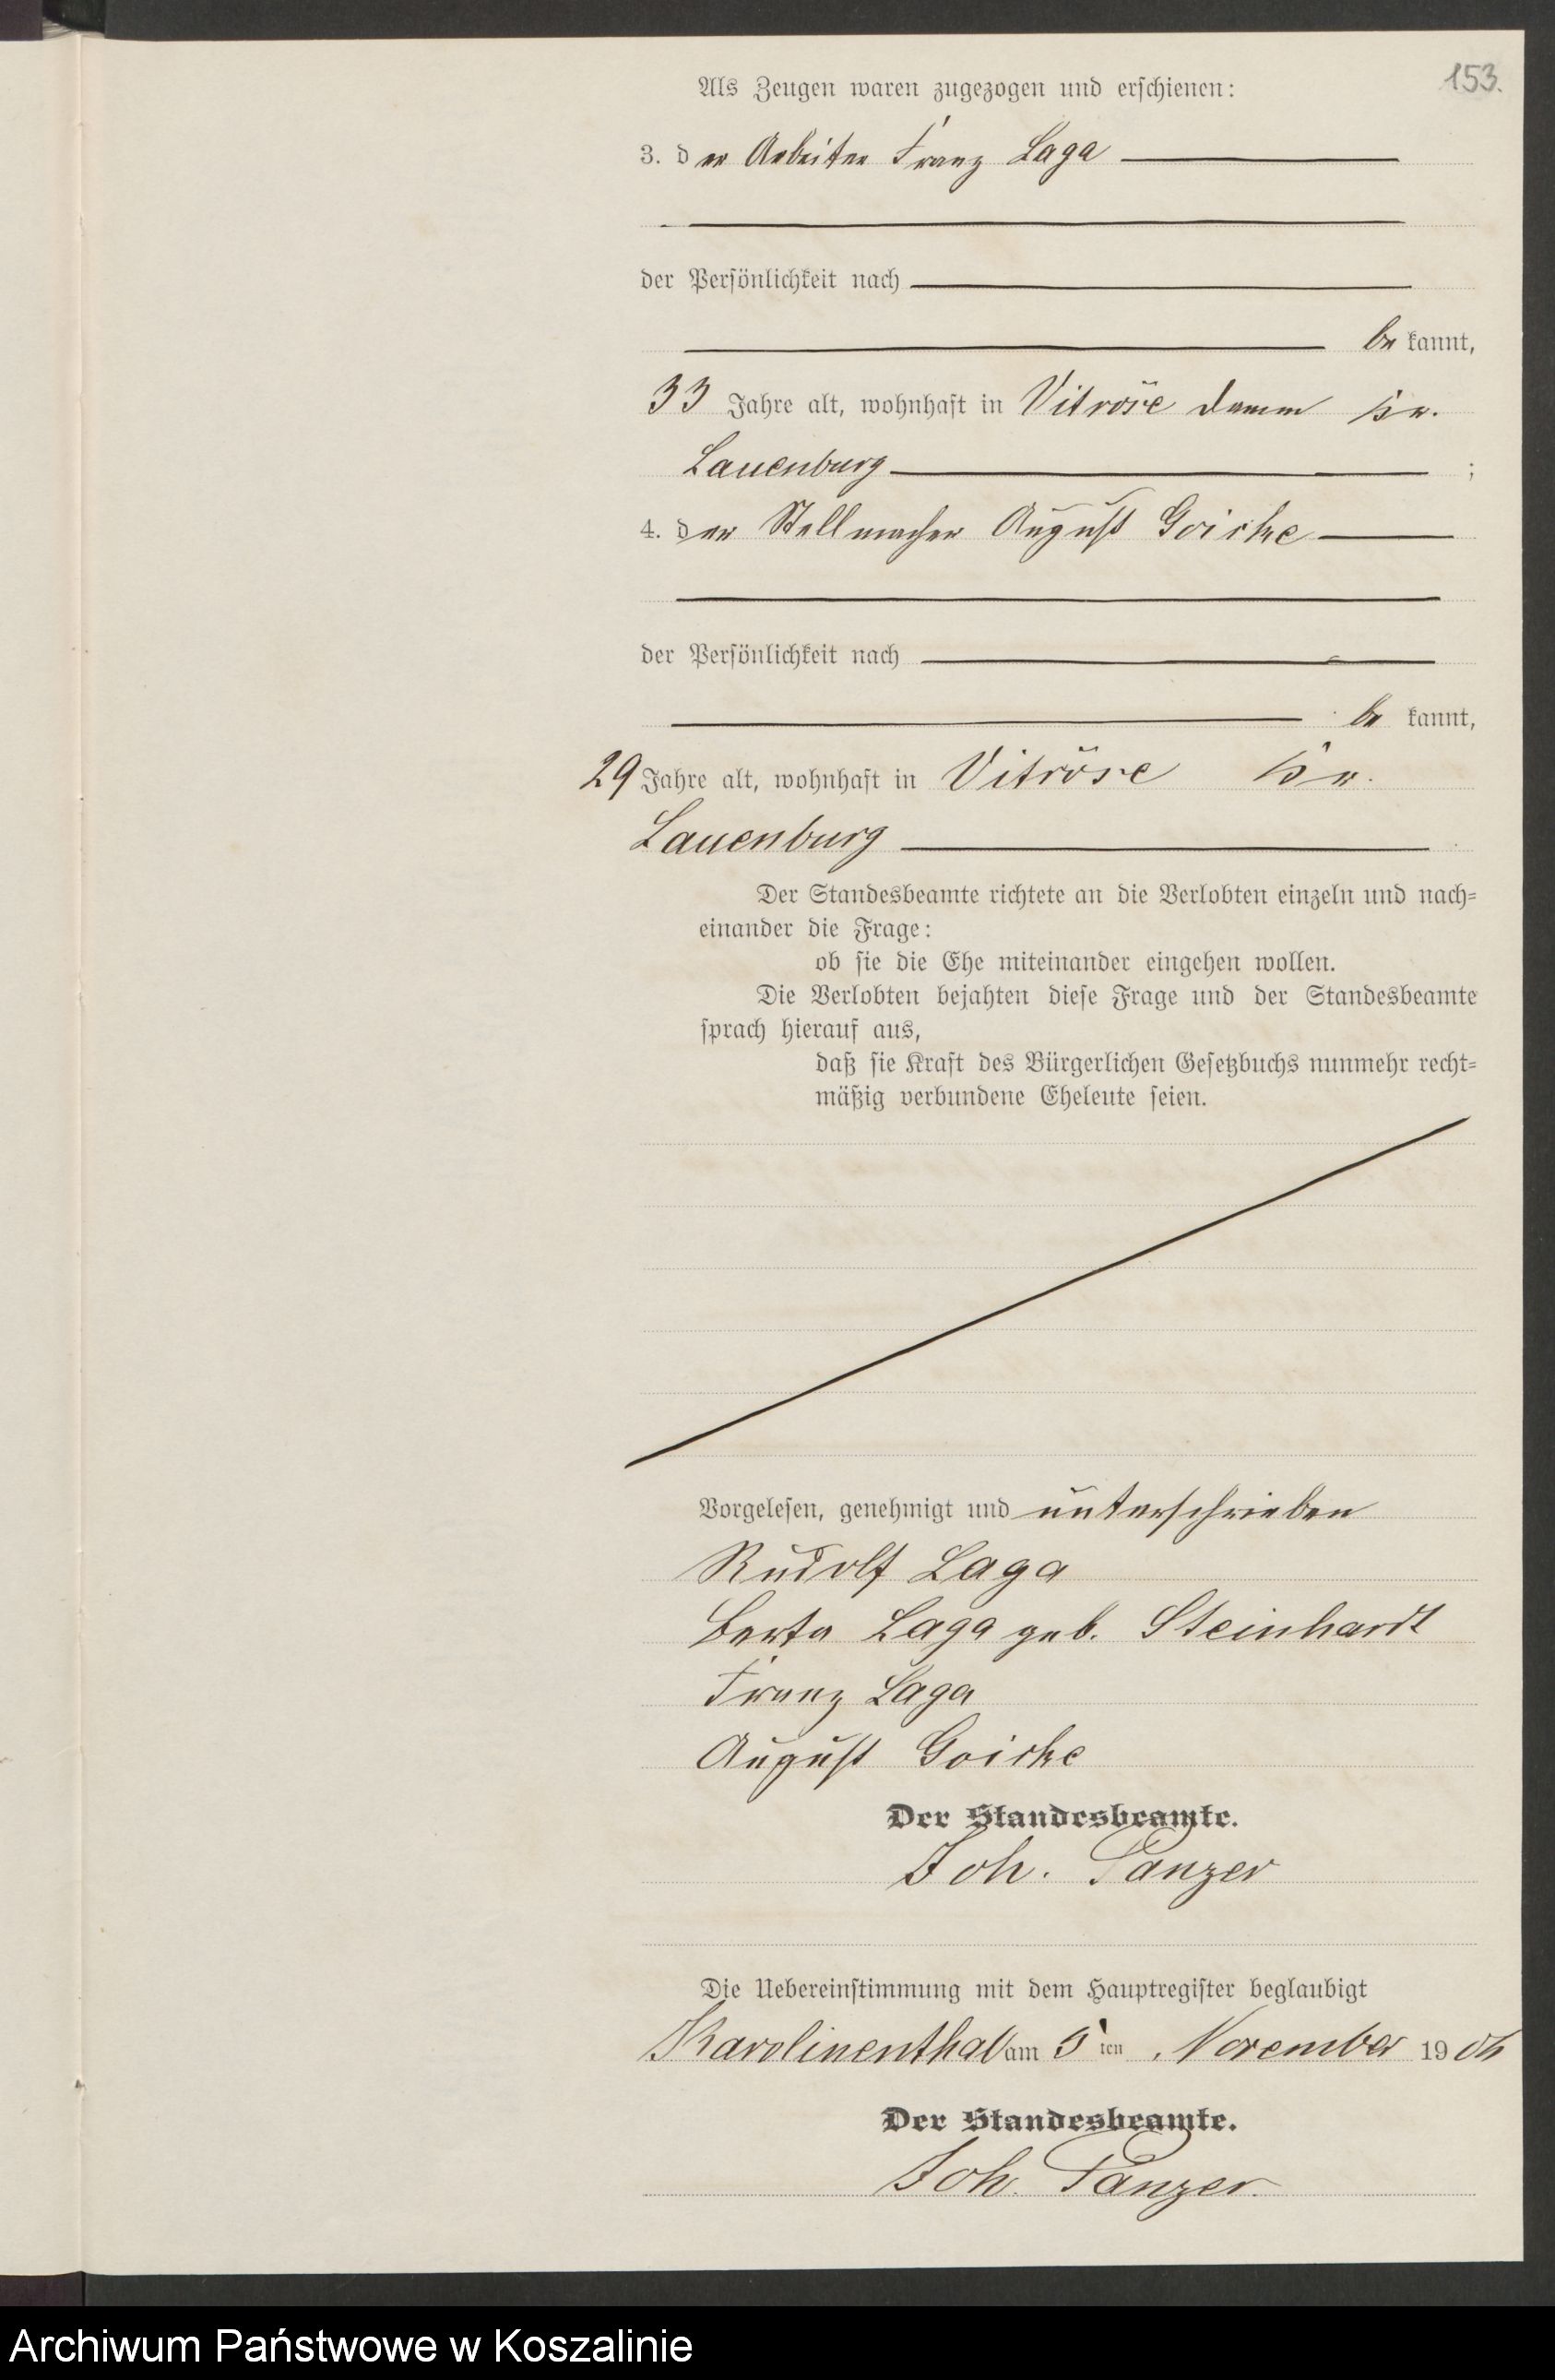 153.
Als Zeugen waren zugezogen und erschienen:
3. der Arbeiter Franz Laga
der Persönlichkeit nach
be kannt,
33 Jahre alt, wohnhaft in Vitröse Damm Kr.
Lauenburg ;
4. der Stellmacher August Goicke
der Persönlichkeit nach
be kannt,
29 Jahre alt, wohnhaft in Vitröse Kr.
Lauenburg
Der Standesbeamte richtete an die Verlobten einzeln und nach=
einander die Frage:
ob sie die Ehe miteinander eingehen wollen.
Die Verlobten bejahten diese Frage und der Standesbeamte
sprach hierauf aus,
daß sie Kraft des Bürgerlichen Gesetzbuchs nunmehr recht=
mäßig verbundene Eheleute seien.
Vorgelesen, genehmigt und unterschrieben
Rudolf Laga
Berta Laga geb. Steinhardt
Franz Laga
August Goicke
Der Standesbeamte.
Joh. Panzer
Die Uebereinstimmung mit dem Hauptregister beglaubigt
Karolinenthal am 5 ten November 19
Der Standesbeamte.
Joh. Panzer.
Archiwum Państwowe w Koszalinie